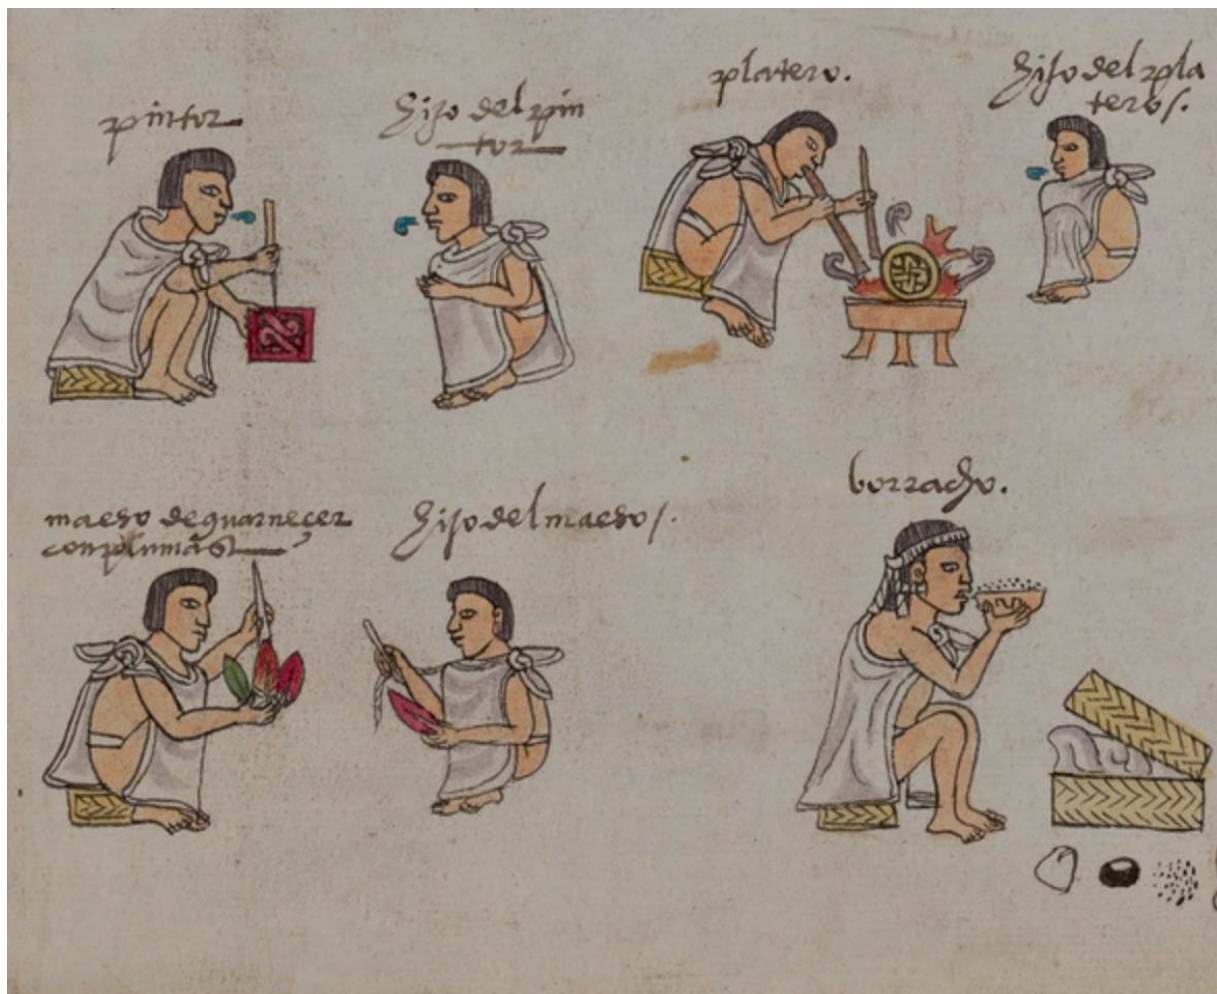 pintor
hijo del pin
tor
platero.
hijo del pla
tero.
maeso de guarneçer
con plumas
hijo del maeso.
borracho.